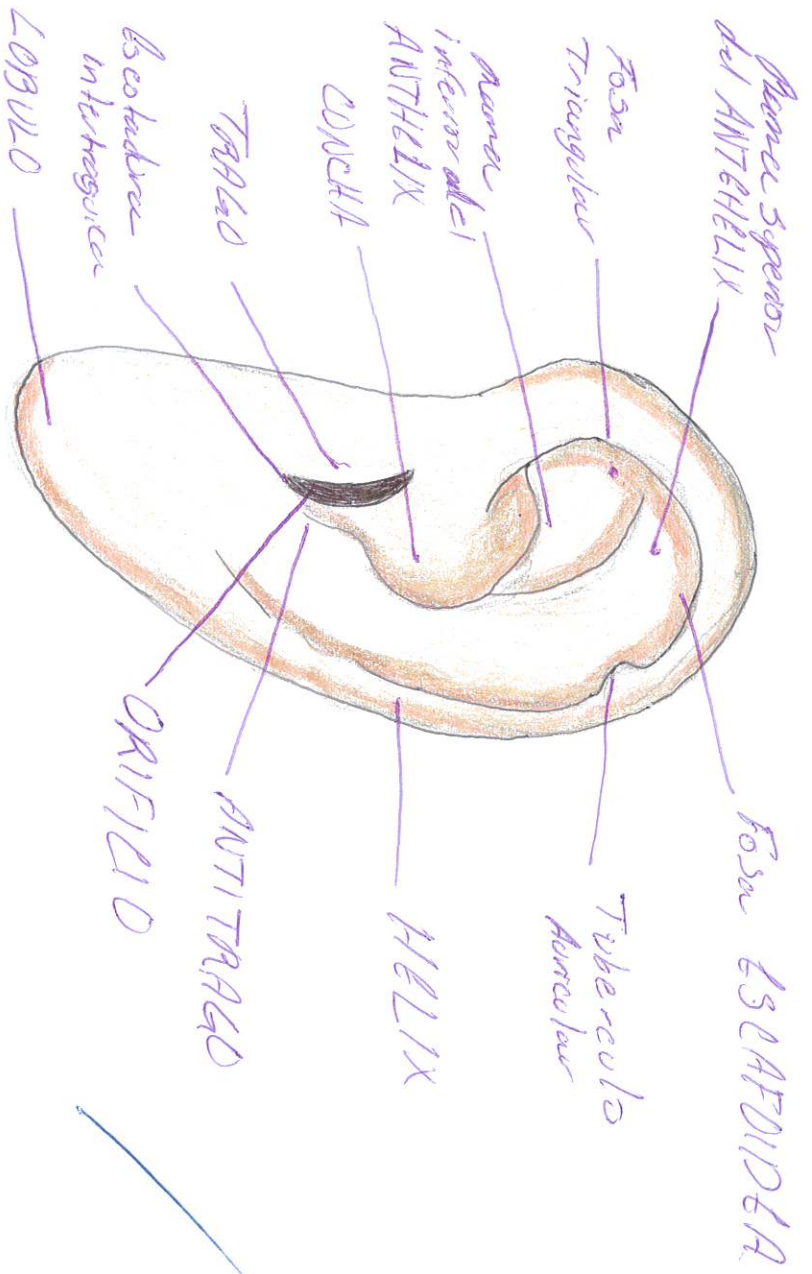 Rama superior
del ANTEHELIX
Fosa
Triangular
Rama
inferior del
ANTHELIX
CONCHA
TRAGO
Escotadura
intertragica
LOBULO
Fosa ESCAFOIDEA
Tuberculo
Auricular
HELIX
ANTITRAGO
ORIFICIO